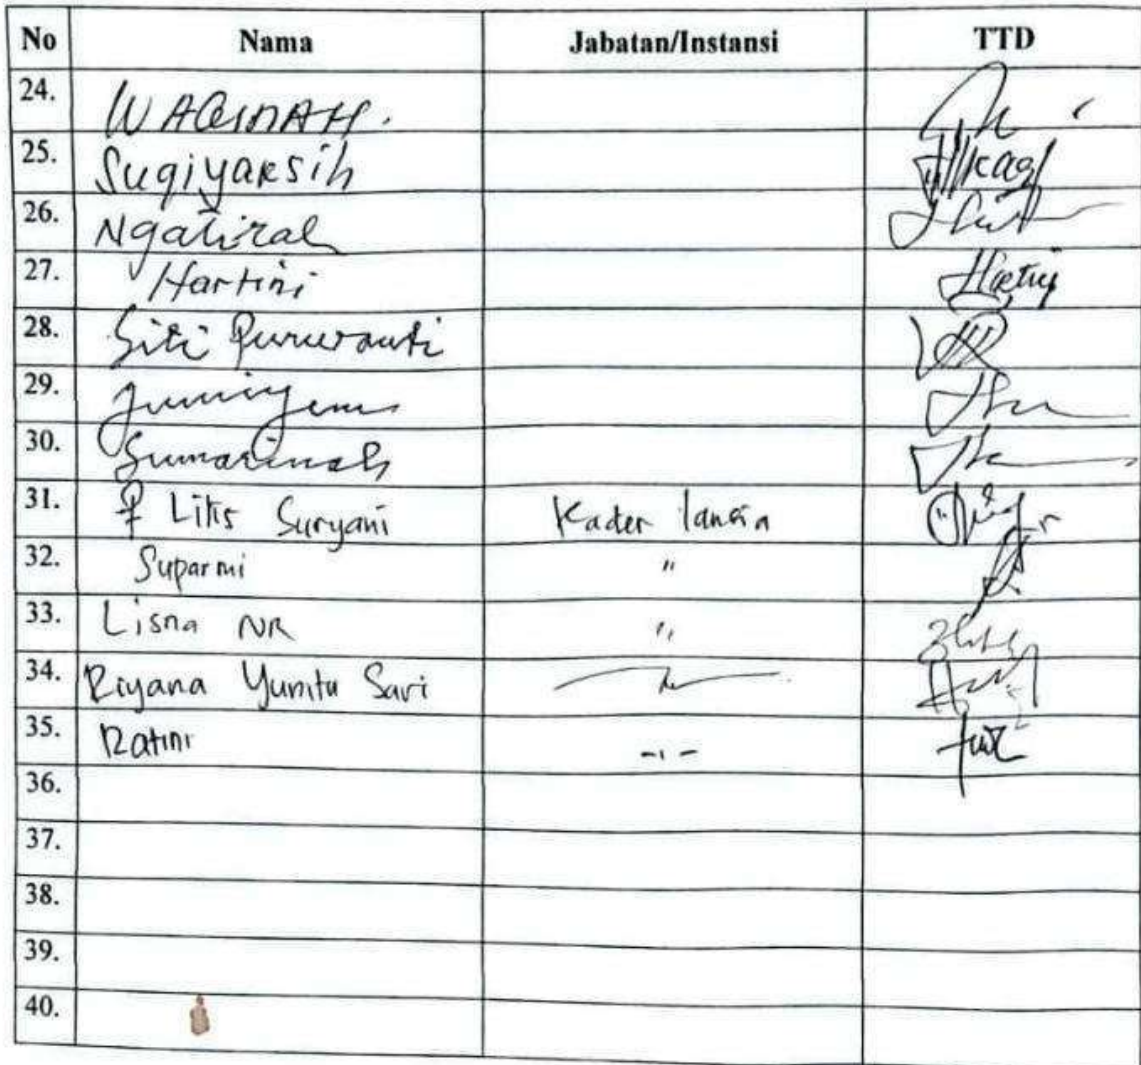 No Nama Jabatan/Instansi TTD
24. WAGINAH.
25. Sugiyarsih
26. Ngatirah
27. Hartini
28. Siti Purwanti
29. Jumiyem
30. Sumarinah
31. Litis Suryani Kader lansia
32. Suparmi "
33. Lisna NR "
34. Riyana Yunita Sari
35. Ratini -"-
36.
37.
38.
39.
40.